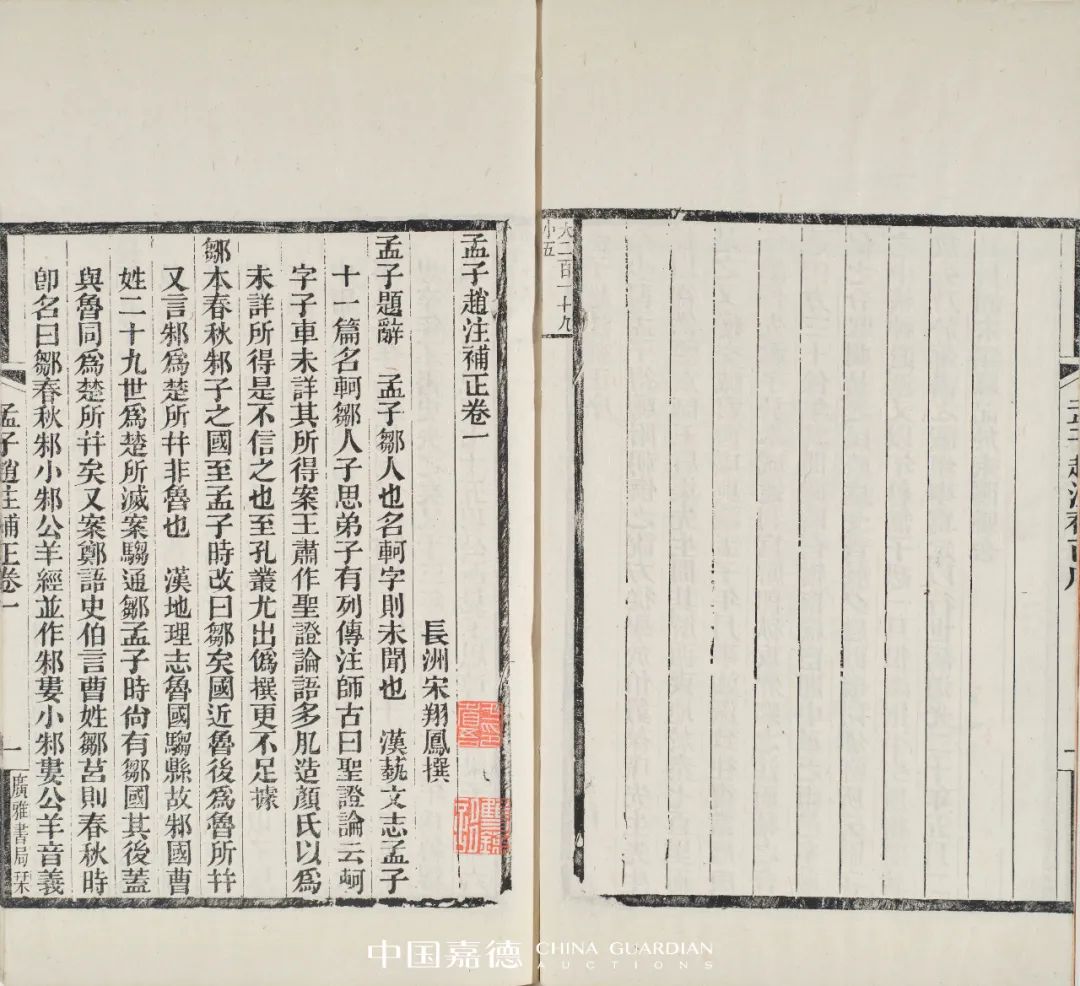 孟子趙注補正序
大二百一十九
小五
孟子趙注補正卷一
長洲宋翔鳳撰
孟子題辭　孟子鄒人也名軻字則未聞也　漢藝文志孟子
十一篇名軻鄒人子思弟子有列傳注師古曰聖證論云軻
字子車未詳其所得案王肅作聖證論語多肊造顏氏以爲
未詳所得是不信之也至孔叢尤出僞撰更不足據
鄒本春秋邾子之國至孟子時改曰鄒矣國近魯後爲魯所幷
又言邾爲楚所幷非魯也　漢地理志魯國騶縣故邾國曹
姓二十九世爲楚所滅案騶通鄒孟子時尙有鄒國其後蓋
與魯同爲楚所幷矣又案鄭語史伯言曹姓鄒莒則春秋時
卽名曰鄒春秋邾小邾公羊經並作邾婁小邾婁公羊音義
孟子趙注補正卷一
一
廣雅書局栞
中国嘉德 CHINA GUARDIAN
AUCTIONS